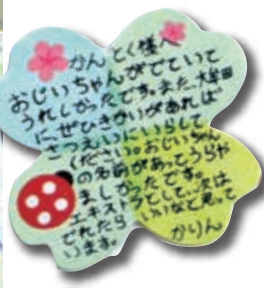 かんとく様へ
おじいちゃんがでていて
うれしかったです。また、大牟田
に、ぜひきかいがあれば
さつえいにいらして
ください。おじいちゃん
の名前があってうらや
ましかったです。
エキストラでして、次は
でれたらいいなと思って
います。
かりん